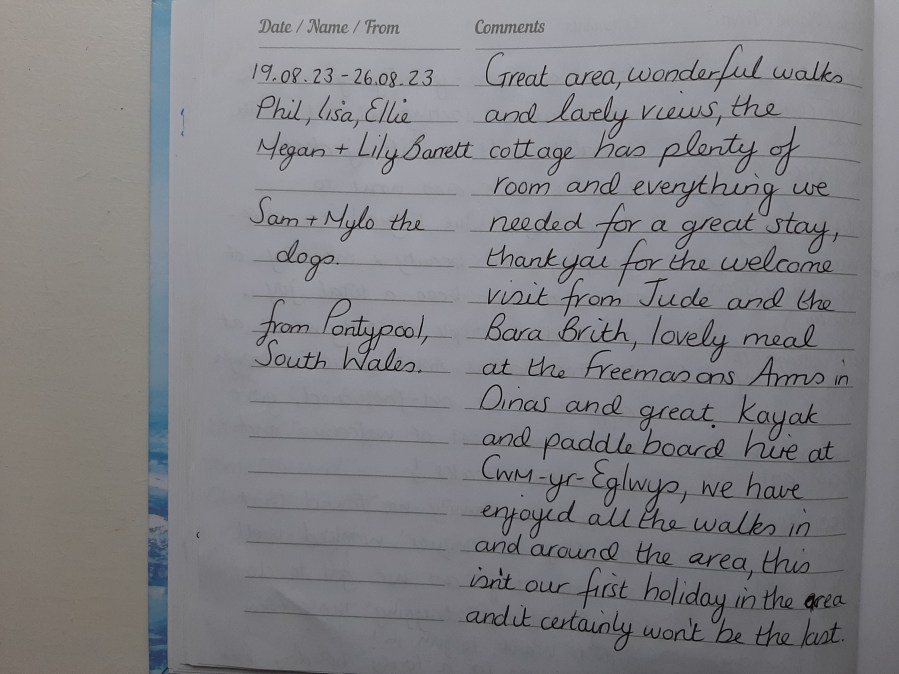 Date / Name / From
Comments
19.08.23 - 26.08.23
Phil, Lisa, Ellie
Megan + Lily Barrett
Sam + Mylo the
dogs.
from Pontypool,
South Wales.
Great area, wonderful walks
and lovely views, the
cottage has plenty of
room and everything we
needed for a great stay,
thankyou for the welcome
visit from Jude and the
Bara Brith, lovely meal
at the Freemasons Arms in
Dinas and great. Kayak
and paddle board hire at
Cwm-yr-Eglwys, we have
enjoyed all the walks in
and around the area, this
isn't our first holiday in the area
and it certainly won't be the last.